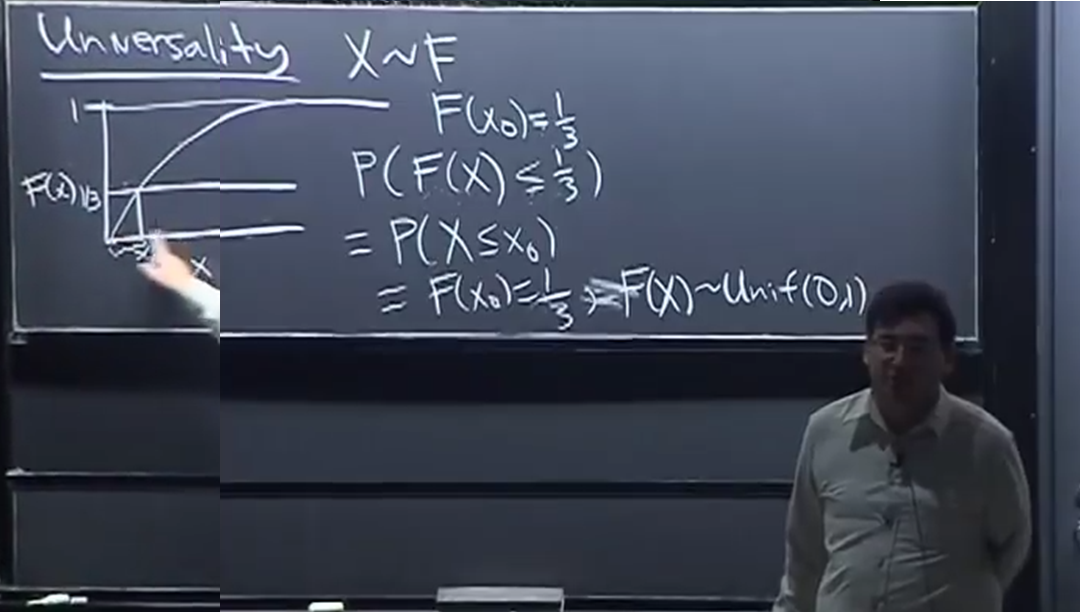 Universality X~F
1
F(x₀)=1/3
F(x) 1/3
P(F(X)≤1/3)
=P(X≤x₀)
x
=F(x₀)=1/3 ⇒ F(X)~Unif(0,1)